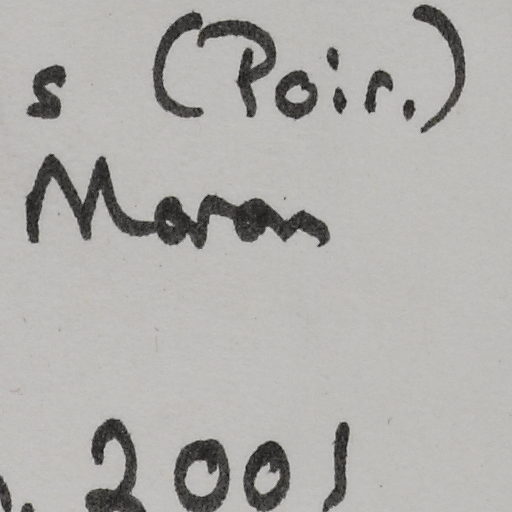 s (Poir.)
Moran
. 2001